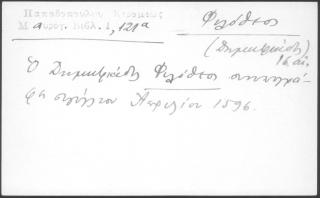 Παπαδοπούλου Κεραμέως
Μαυρογ. Βιβλ. 1, 121α
Φιλόθεος
(Δημητριάδος)
16 αἰ.
Ὁ Δημητριάδος Φιλόθεος συνυπογρά-
φει σιγίλλιον Ἀπριλίου 1596.